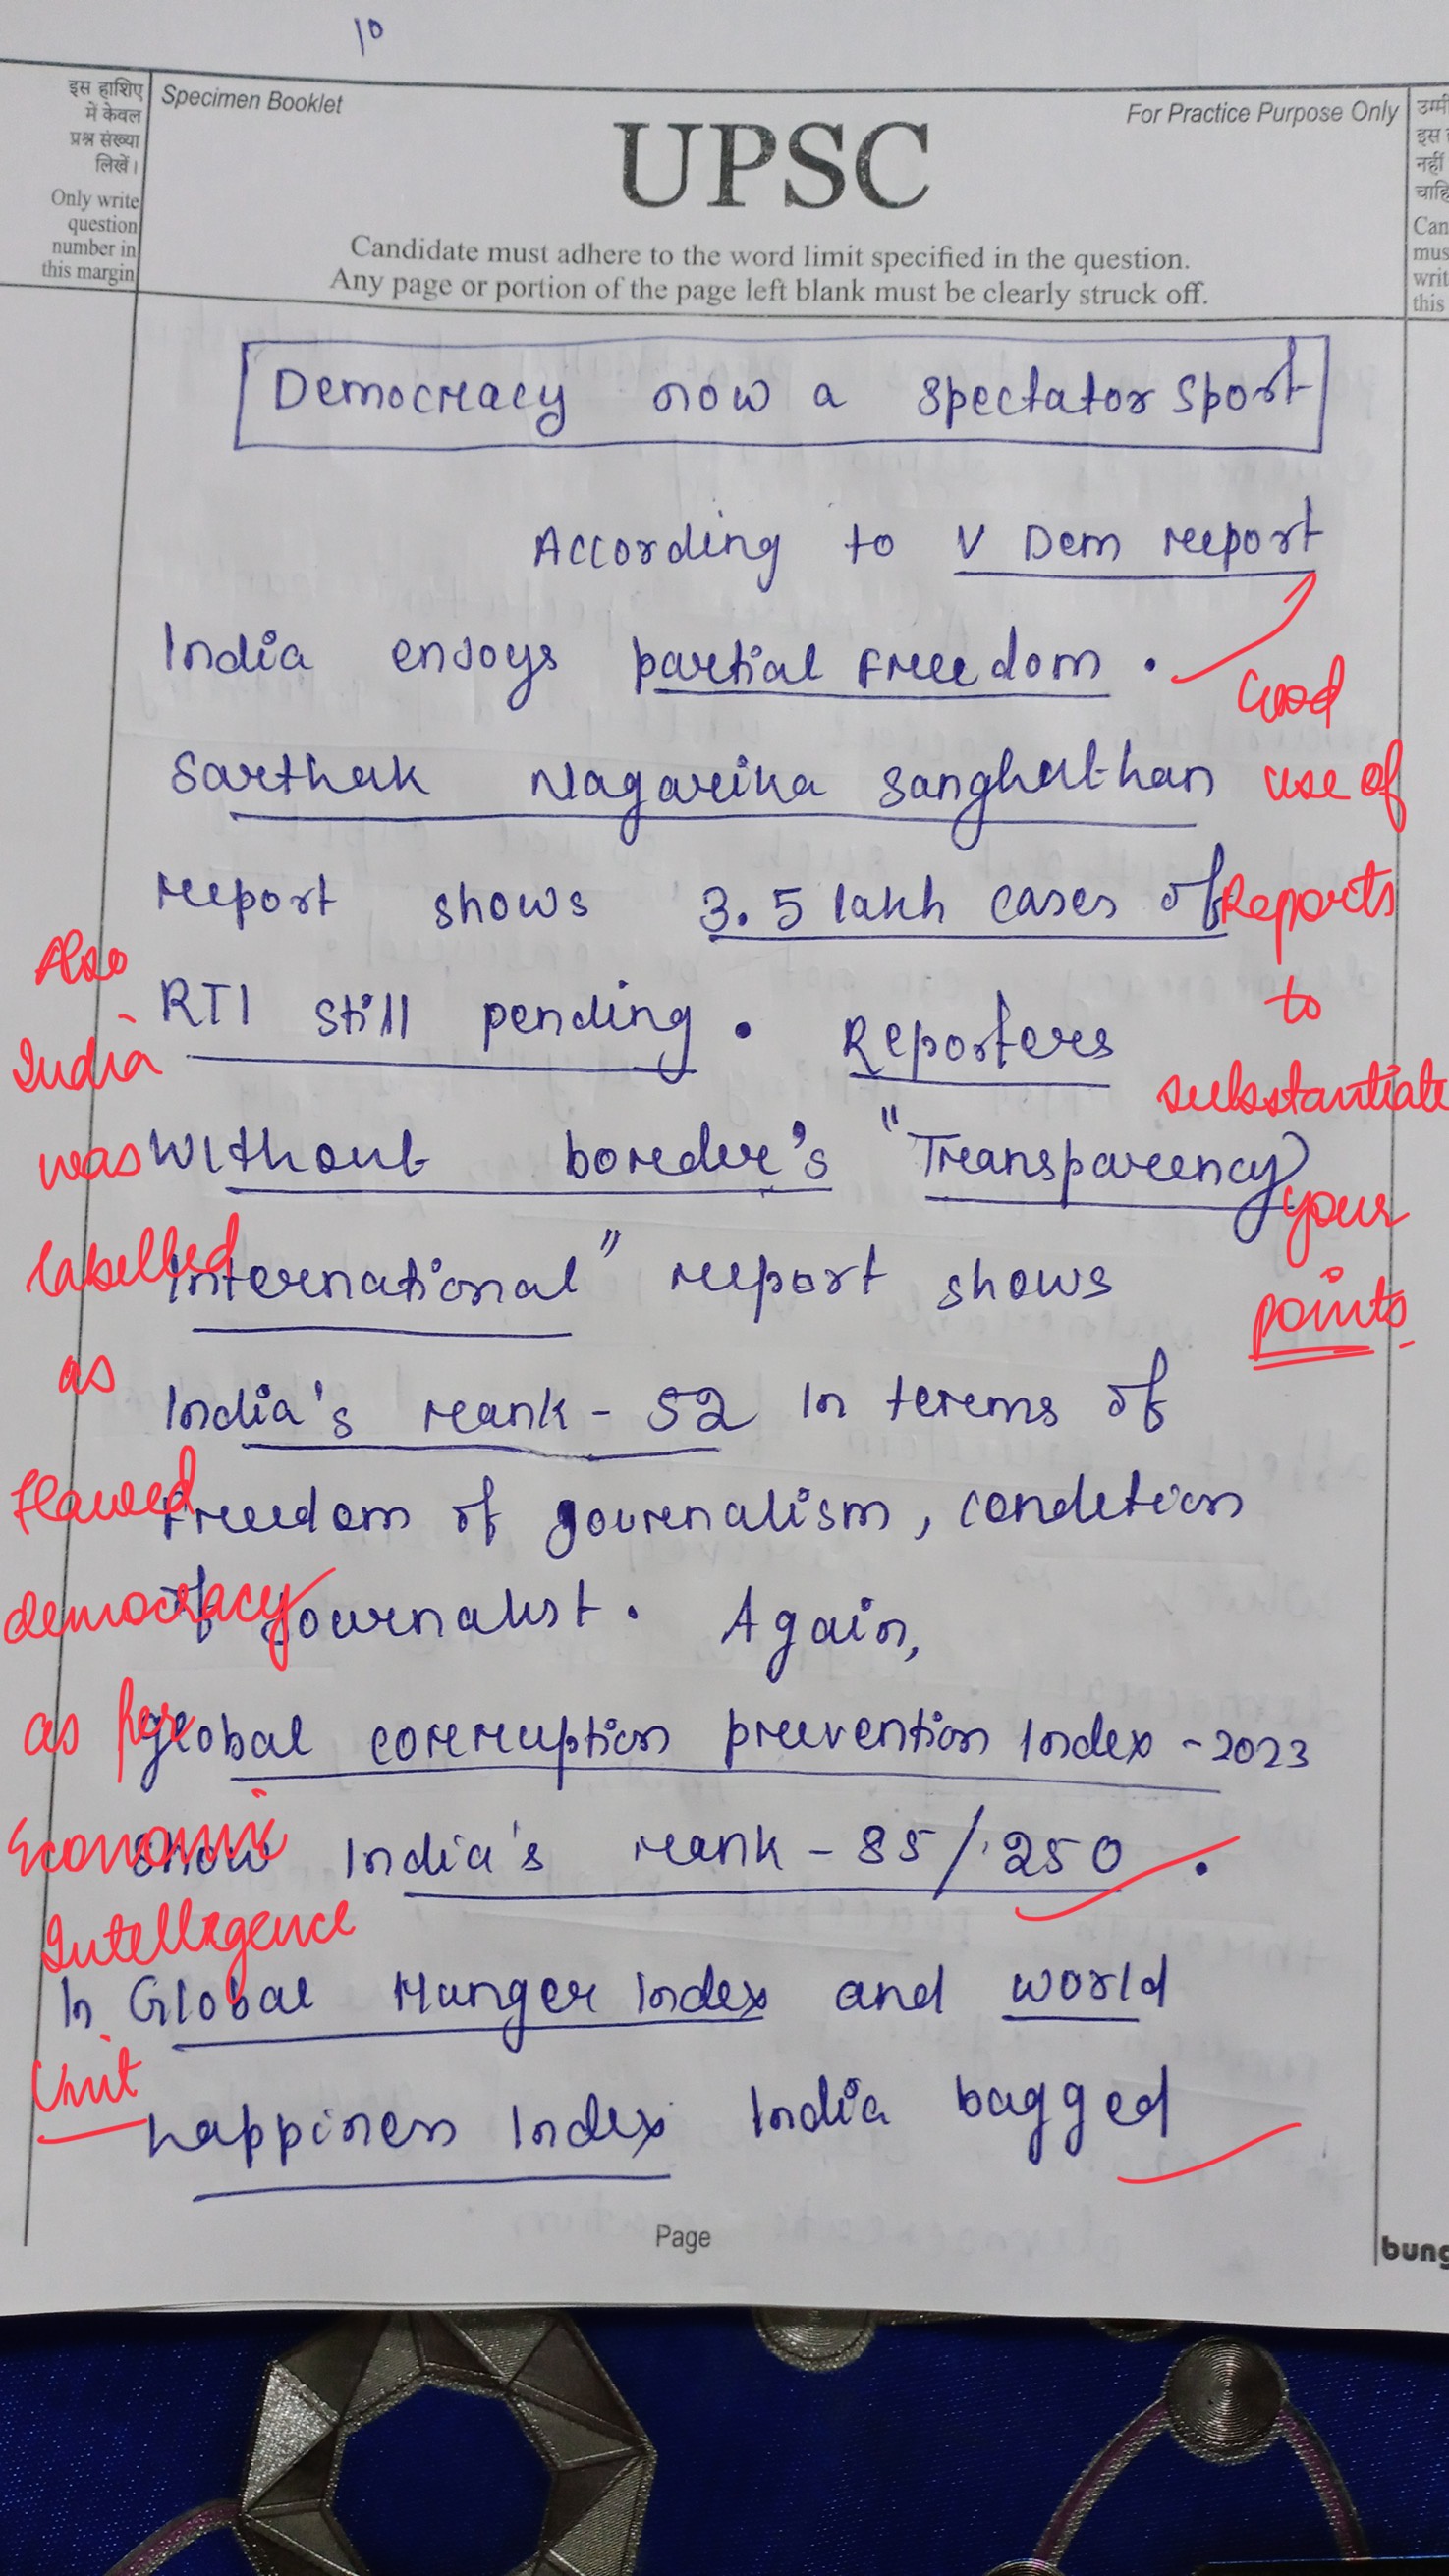 10
इस हाशिए
में केवल
प्रश्न संख्या
लिखें।
Only write
question
number in
this margin
Specimen Booklet
For Practice Purpose Only
UPSC
Candidate must adhere to the word limit specified in the question.
Any page or portion of the page left blank must be clearly struck off.
इस
नहीं
Can
mus
writ
this
Democracy now a spectator sport
According to V Dem report
India enjoys partial freedom.
Sarthak Nagarika Sanghathan
report shows 3.5 lakh cases of
RTI still pending. Reporters
without border's "Transparency
International" report shows
India's rank - 52 in terms of
freedom of journalism, condition
of journalist. Again,
global corruption prevention Index - 2023
show India's rank - 85/250.
In Global Hunger Index and world
happiness Index India bagged
Good
use of
Reports
to
substantiate
your
points.
Also
India
was
labelled
as
flawed
democracy
as per
Economic
Intelligence
Unit
Page
bung